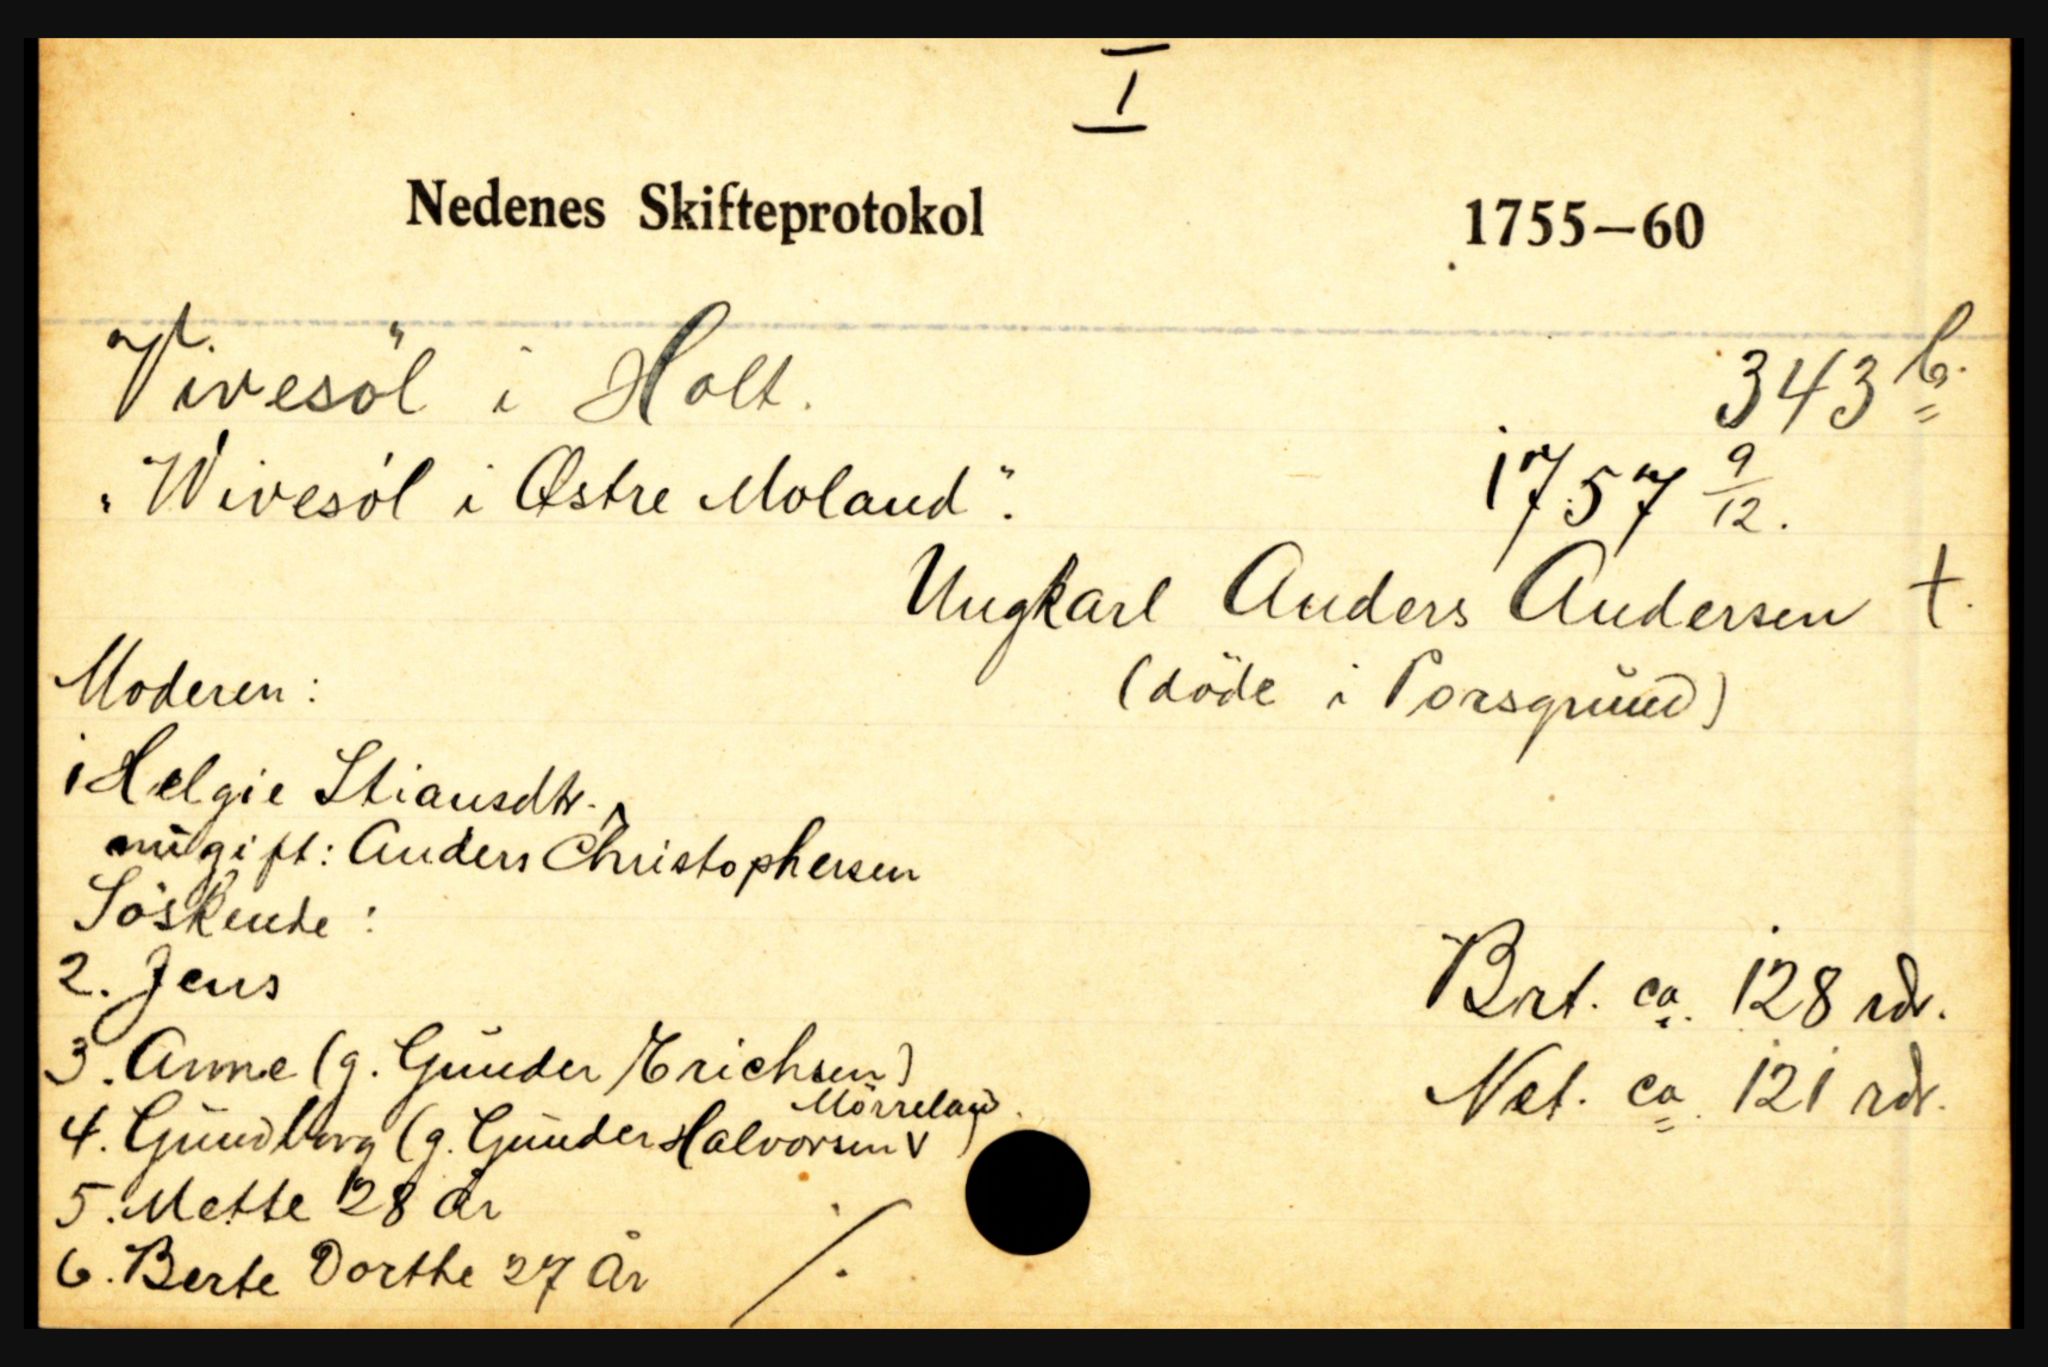 I
Nedenes Skifteprotokol 1755—60
Vivesöl i Holt. 343 b.
"Wivesöl i Østre Moland". 1757 9/12.
Ungkarl Anders Andersen †.
(döde i Porsgrund)
Moderen:
1 Helgie Stiansdtr.
nu gift: Anders Christophersen
Söskende:
2. Jens
3. Anne (g. Gunder Erichsen)
4. Gundborg (g. Gunder Halvorsen Mörreland)
5. Mette 28 år
6. Berte Dorthe 27 År
Brt. ca. 128 rdr.
Net. ca. 121 rdr.
/.